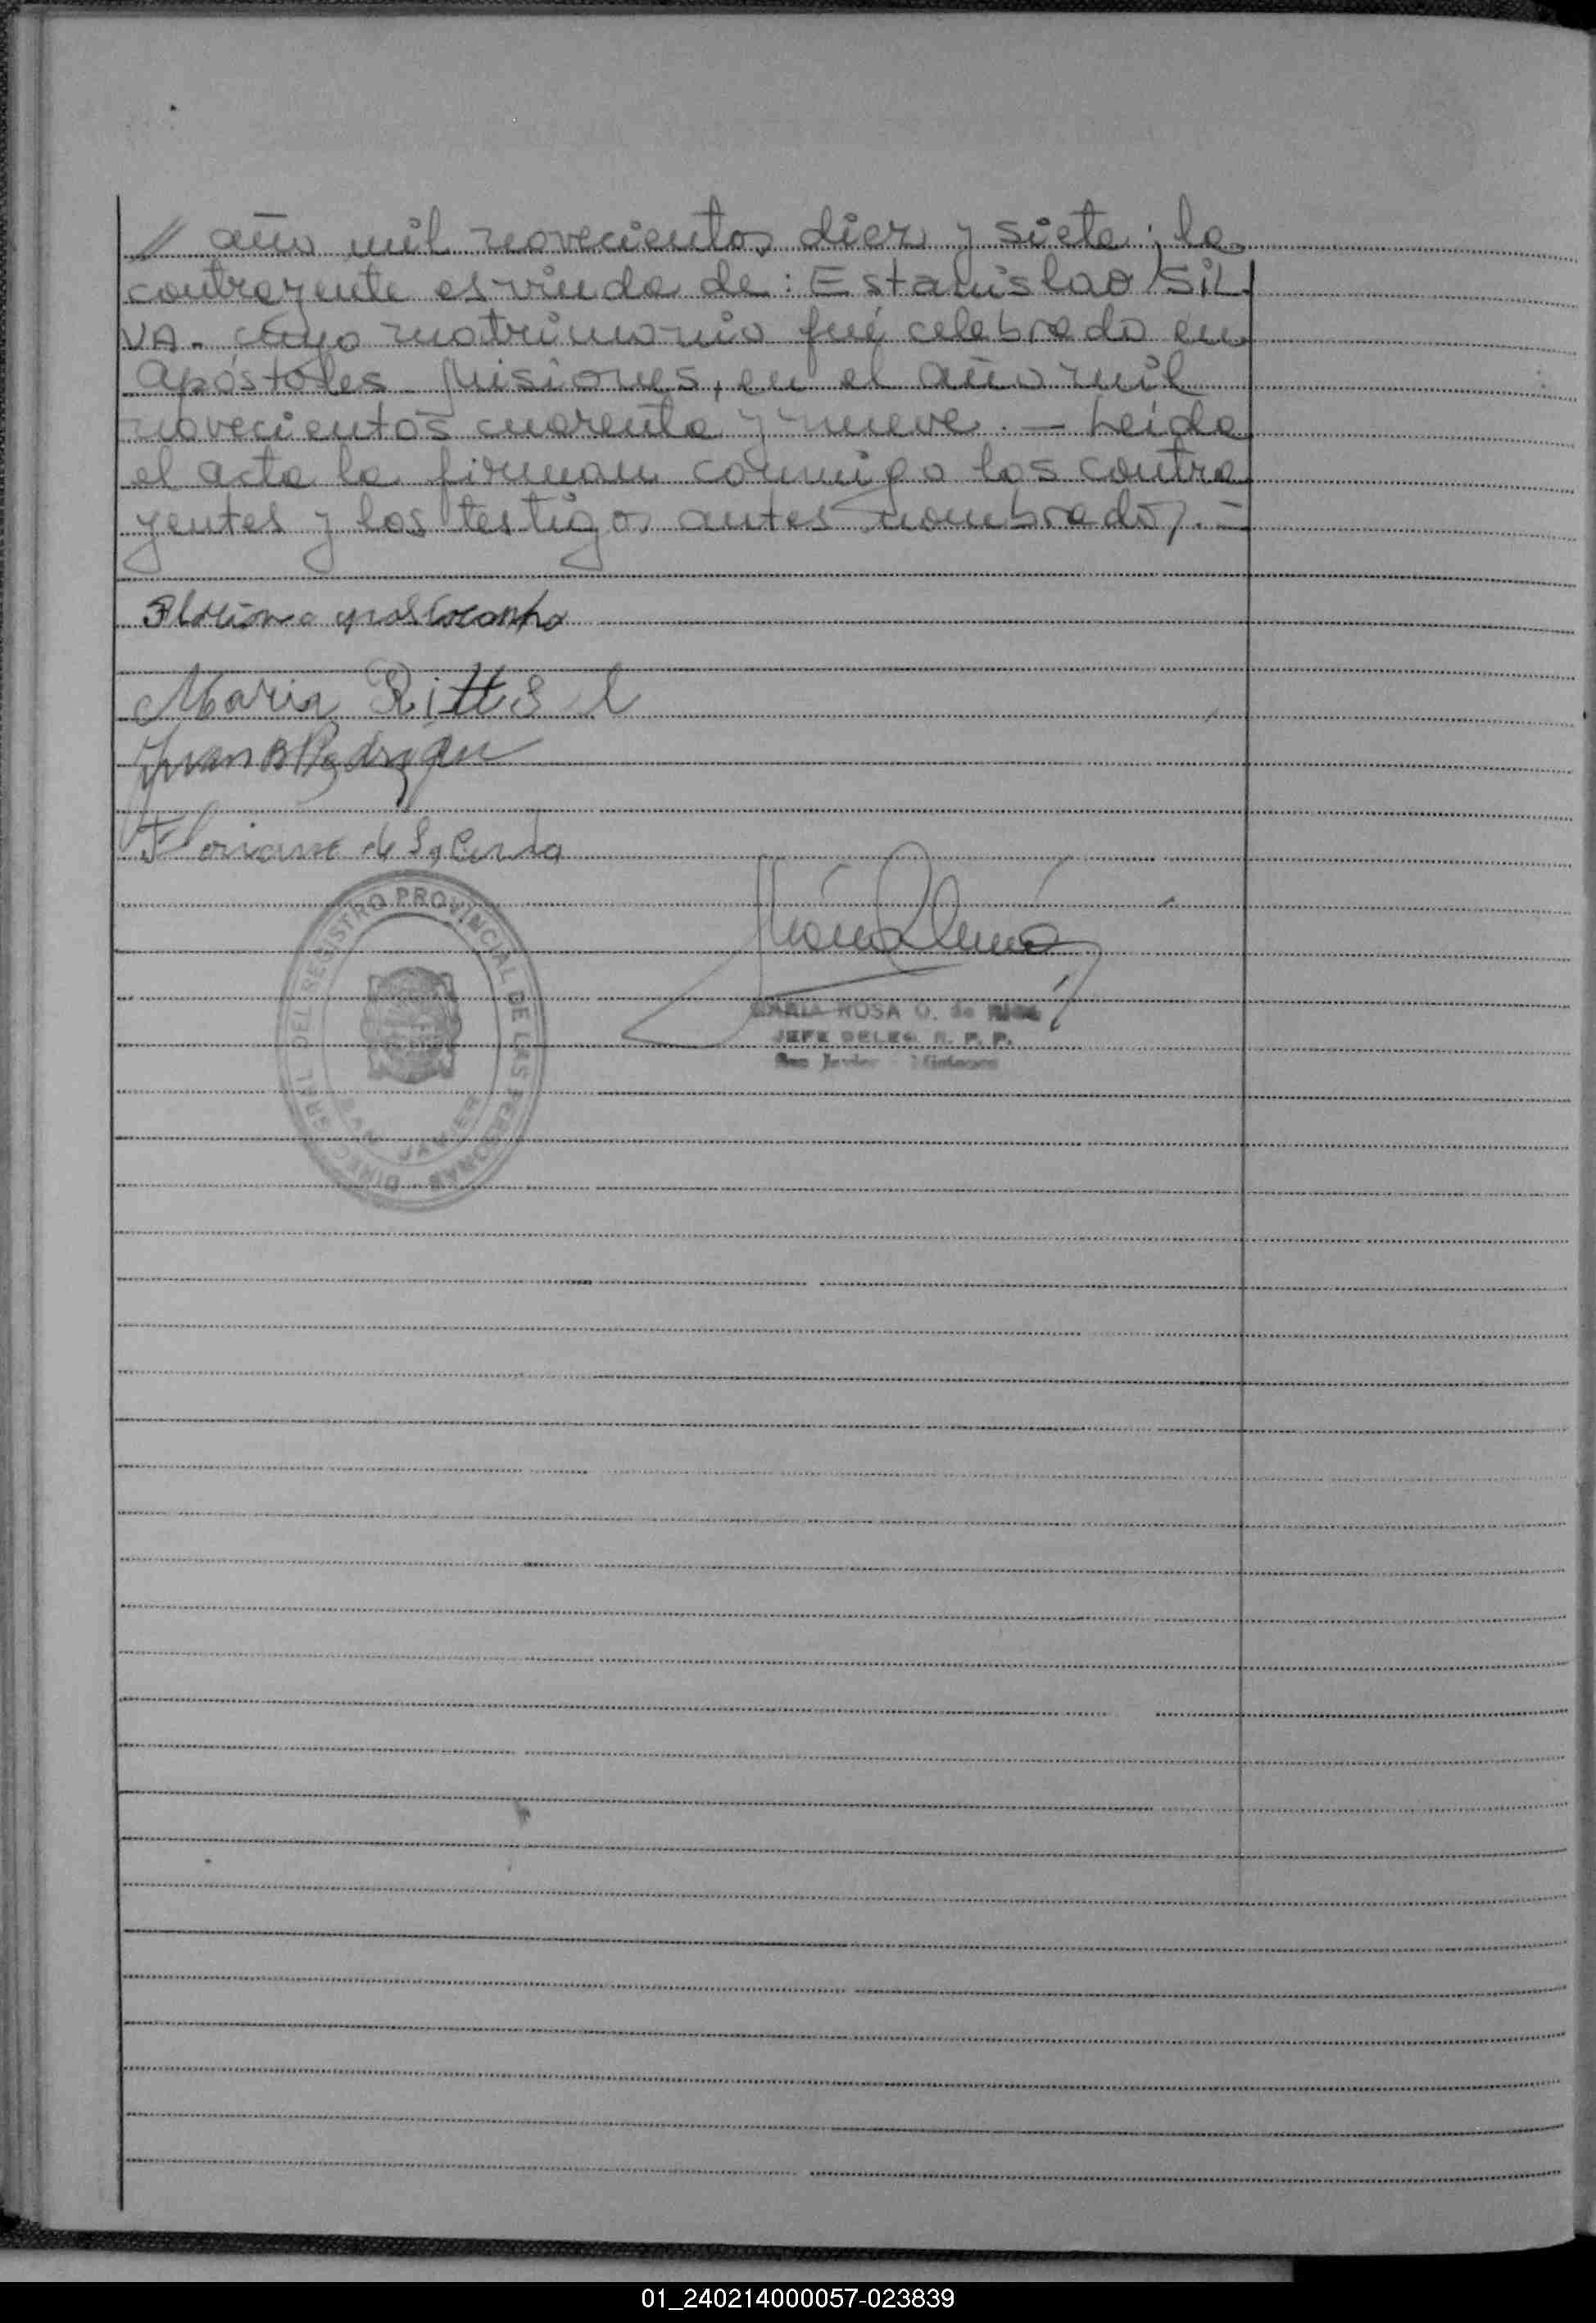 // año mil novecientos diez y siete; la
contrayente es viuda de: Estanislao SIL
VA. cuyo matrimonio fué celebrado en
Apóstoles Misiones, en el año mil
novecientos cuarenta y nueve. — Leída
el acta la firman conmigo los contra
yentes y los testigos antes nombrados. =
Maria Rittel
Juan B
Floriano de
DIREC GRAL DEL REGISTRO PROVINCIAL DE LAS PERSONAS
SAN JAVIER
MARIA ROSA O. de RIOS
JEFE DELEG. R. P. P.
San Javier - Misiones
01_240214000057-023839